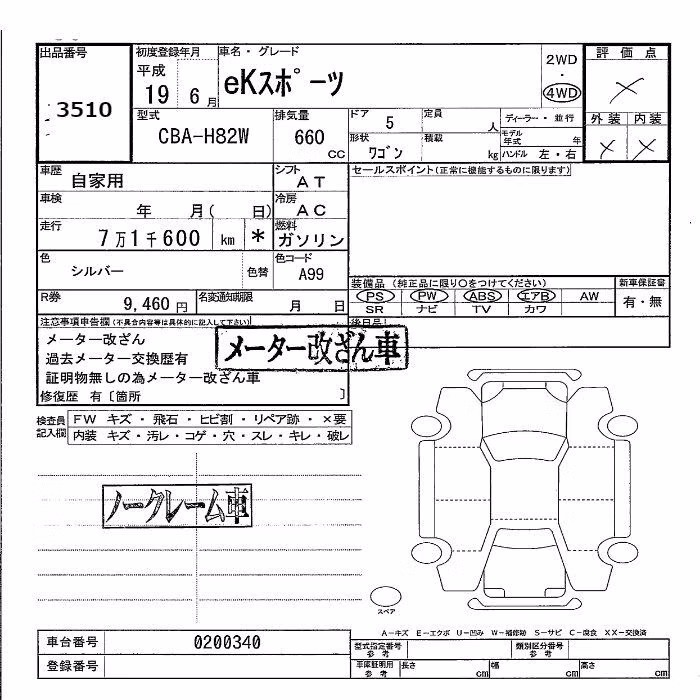 出品番号
3510
初度登録年月
平成
19 6月
車名・グレード
eKスポーツ
2WD
・
4WD
評価点
外装 内装
型式
CBA-H82W
排気量
660
cc
ドア 5
定員 人
ディーラー・並行
形状
ワゴン
積載 kg
モデル年式 年
ハンドル 左・右
車歴
自家用
シフト
AT
セールスポイント(正常に機能するものに限ります)
車検
年 月( 日)
冷房
AC
走行
7万1千600 km *
燃料
ガソリン
色
シルバー
色替
色コード
A99
装備品 (純正品に限り○をつけてください)
新車保証書
PS PW ABS エアB AW
有・無
SR ナビ TV カワ
R券
9,460 円
名変通知期限
月 日
注意事項申告欄(不具合内容等は具体的に記入して下さい)
後日品
メーター改ざん
メーター改ざん車
過去メーター交換歴有
証明物無しの為メーター改ざん車
修復歴 有〔箇所 〕
検査員記入欄
FW キズ・飛石・ヒビ割・リペア跡・×要
内装 キズ・汚レ・コゲ・穴・スレ・キレ・破レ
ノークレーム車
スペア
A-キズ E-エクボ U-凹み W-補修跡 S-サビ C-腐食 XX-交換済
車台番号
0200340
型式指定番号
参考
類別区分番号
参考
登録番号
車庫証明用
参考
長さ cm
幅 cm
高さ cm